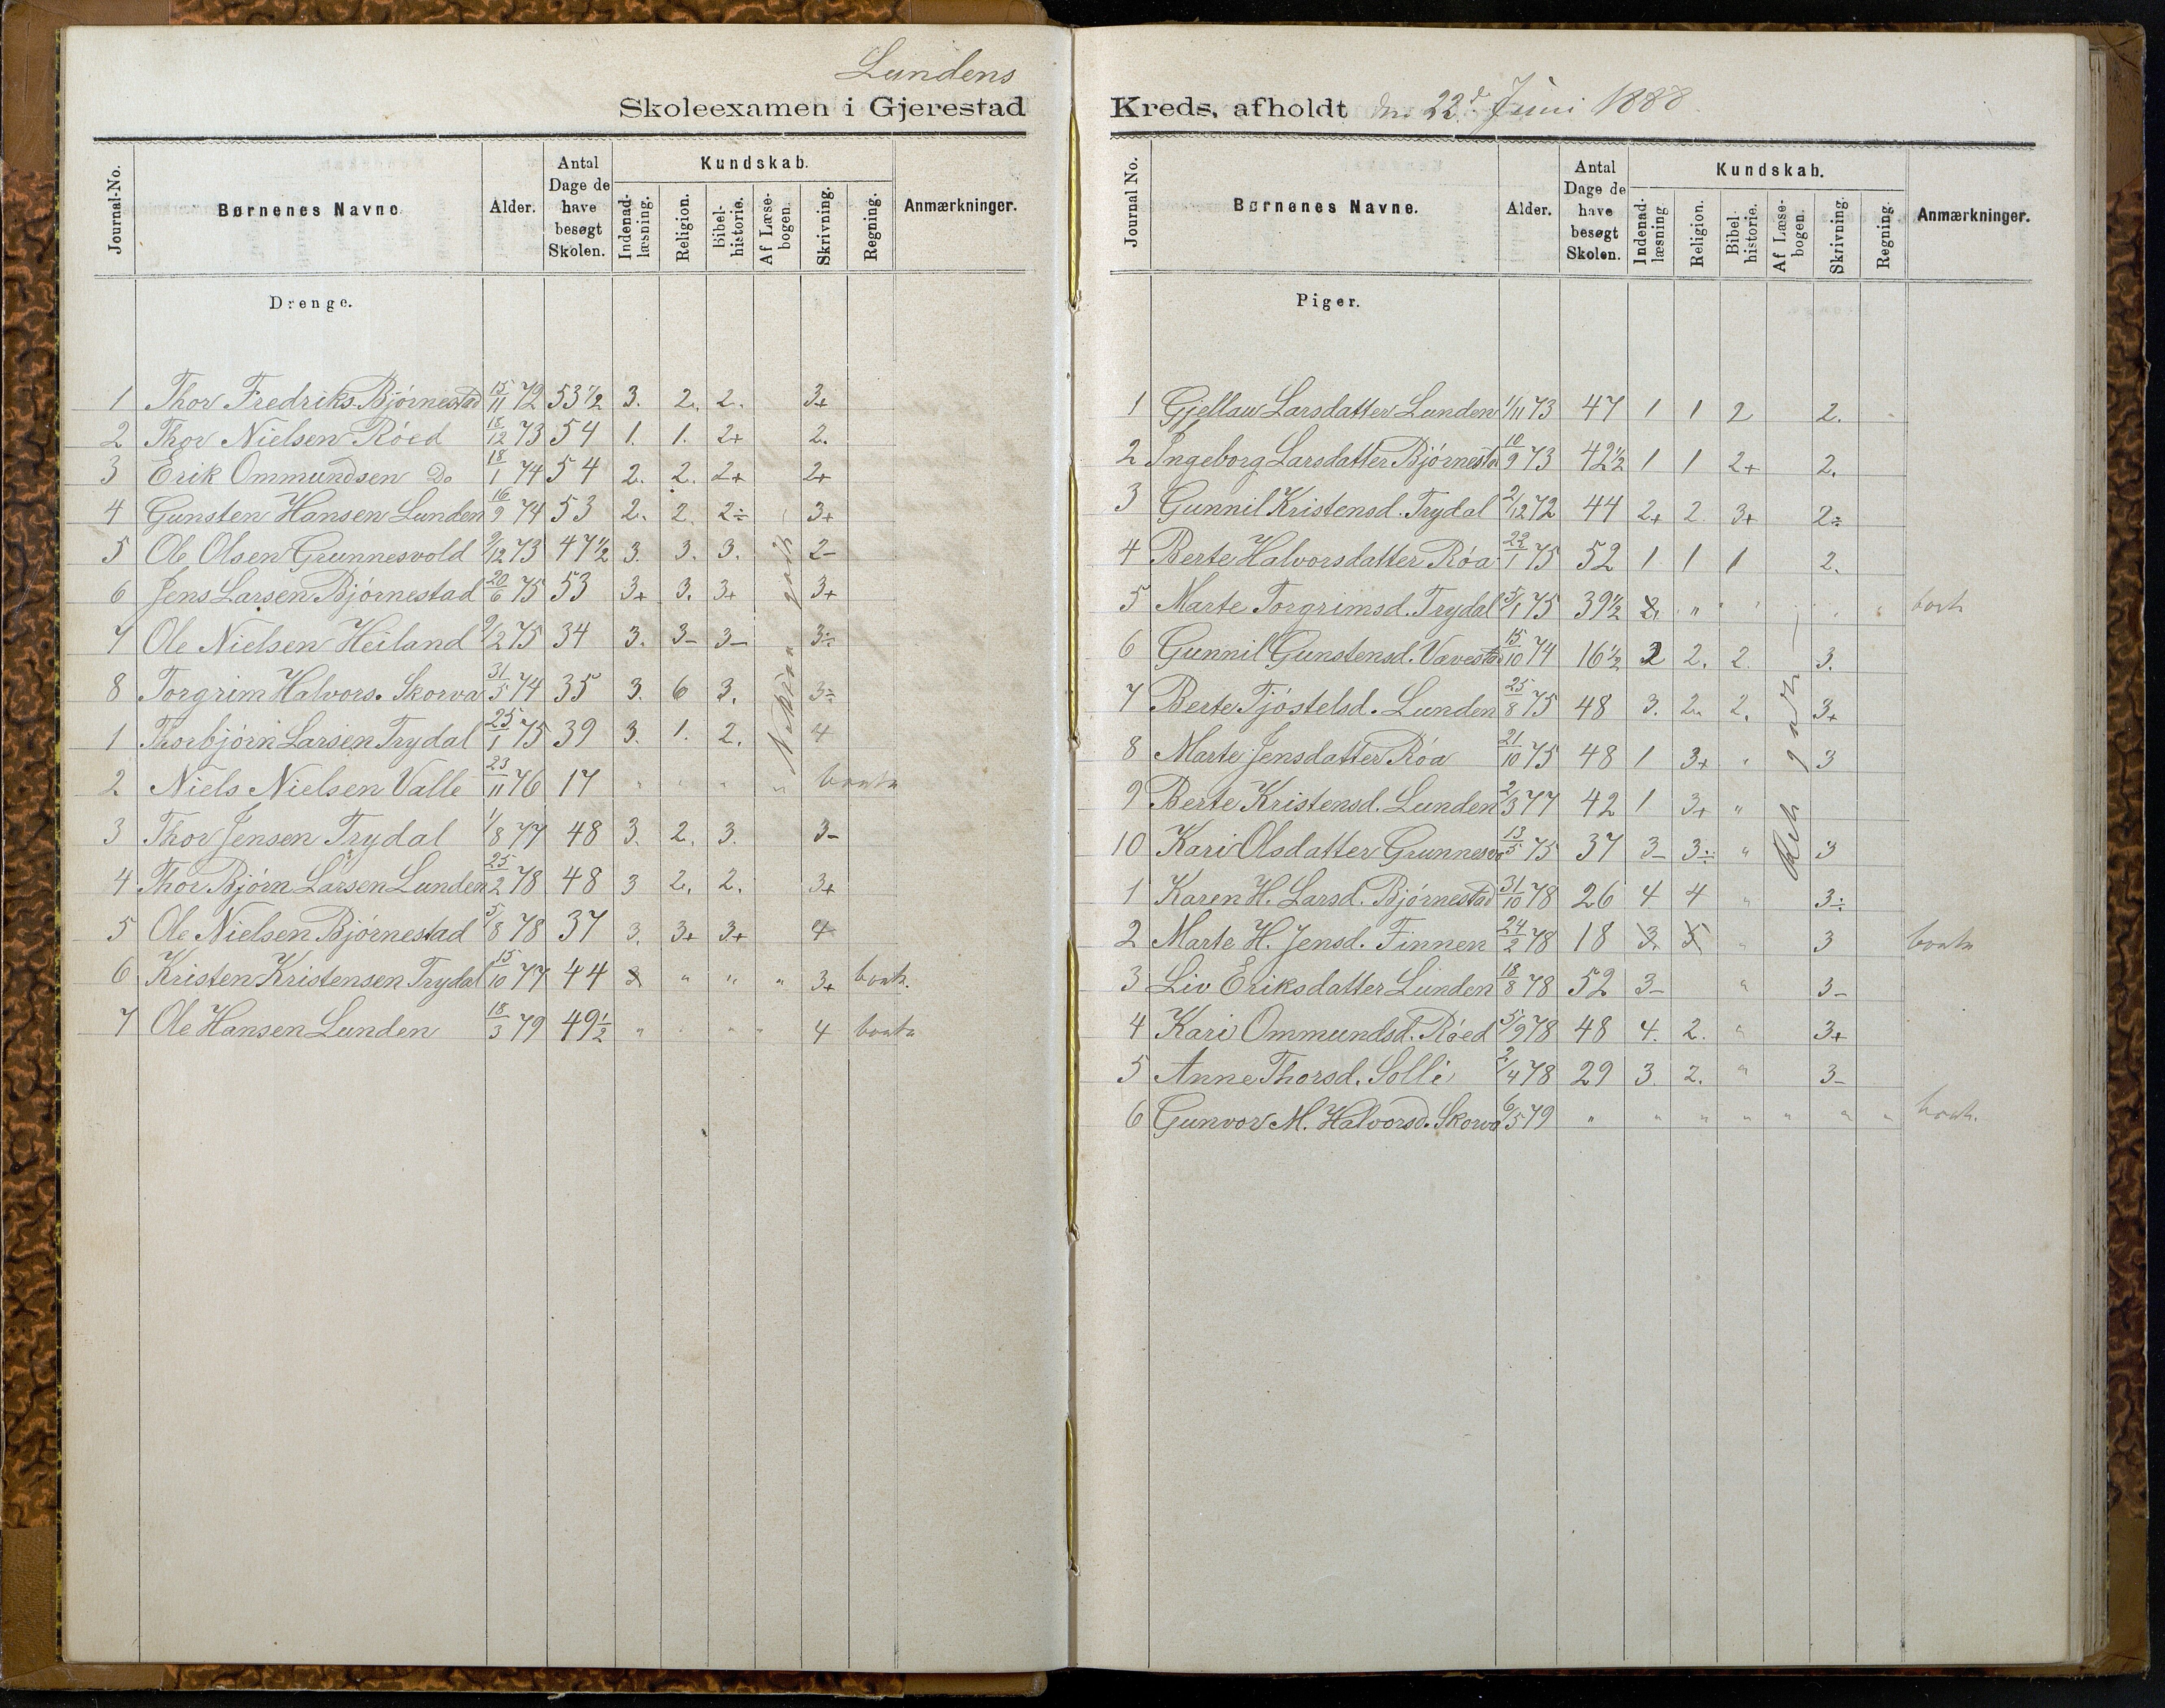 Lundens
Skoleexamen i Gjerestad
Journal-No. Børnenes Navne Alder. Antal Dage de have besøgt Skolen. Kundskab. Indenadlæsning. Religion. Bibelhistorie. Af Læsebogen. Skrivning. Regning. Anmærkninger.
Drenge.
1 Thor Fredriks. Bjørnestad 15/11 72 53 1/2 3. 2. 2. 3+
2 Thor Nielsen Røed 18/12 73 54 1. 1. 2+ 2.
3 Erik Ommundsen Do 18/1 74 54 2. 2. 2+ 2+
4 Gunsten Hansen Lunden 16/9 74 53 2. 2. 2÷ 3+
5 Ole Olsen Grunnesvold 9/12 73 47 1/2 3. 3. 3. 2-
6 Jens Larsen Bjørnestad 20/6 75 53 3+ 3. 3+ 3+
7 Ole Nielsen Heiland 9/2 75 34 3. 3- 3- 3÷
8 Torgrim Halvors. Skorva 31/5 74 35 3. 6 3. 3÷
1 Thorbjørn Larsen Trydal 25/1 75 39 3. 1. 2. 4
2. Niels Nielsen Valle 23/11 76 17 " " " "
3 Thor Jensen Trydal 1/8 77 48 3. 2. 3. 3-
4 Thor Bjørn Larsen Lunden 25/2 78 48 3 2. 2. 3+
5 Ole Nielsen Bjørnestad 5/8 78 37 3. 3+ 3+ 4
6 Kristen Kristensen Trydal 15/10 77 44 " " " 3+
7 Ole Hansen Lunden 18/3 79 49 1/2 " " " " 4
Kreds, afholdt den 22d Juni 1888.
Journal No. Børnenes Navne. Alder. Antal Dage de have besøgt Skolen. Kundskab. Indenadlæsning. Religion. Bibelhistorie. Af Læsebogen. Skrivning. Regning. Anmærkninger.
Piger.
1 Gjellau Larsdatter Lunden 1/11 73 47 1 1 2 2.
2 Ingeborg Larsdatter Bjørnesta 10/9 73 42 1/2 1 1 2+ 2.
3 Gunnil Kristensd. Trydal 2/12 72 44 2+ 2 3+ 2÷
4 Berte Halvorsdatter Røa 22/1 75 52 1 1 1 2.
5 Marte Torgrimsd. Trydal 5/1 75 39 1/2 2. " " "
6 Gunnil Gunstensd. Vævestad 15/10 74 16 1/2 2 2. 2. 3.
7 Berte Tjøstelsd. Lunden 25/8 75 48 3. 2. 2. 3+
8 Marte Jensdatter Røa 21/10 75 48 1 3+ " 3
9 Berte Kristensd. Lunden 2/3 77 42 1 3+ "
10 Kari Olsdatter Grunnesvo 13/5 75 37 3- 3÷ " 3
1 Karen H. Larsd. Bjørnestad 31/10 78 26 4 4 " 3÷
2 Marte H. Jensd. Finnen 24/2 78 18 3. 5 " 3
3 Liv Eriksdatter Lunden 18/8 78 52 3- " 3-
4 Kari Ommundsd. Røed 5/9 78 48 4. 2. " 3+
5 Anne Thorsd. Solli 2/4 78 29 3. 2. " 3-
6 Gunvor M. Halvorsd. Skorva 6/5 79 " " " " " " "